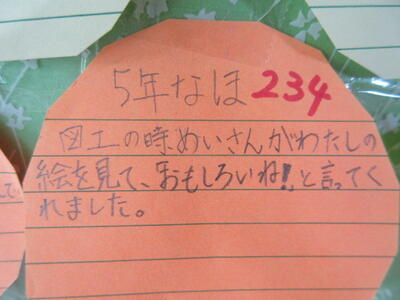 5年なほ 234
図工の時めいさんがわたしの
絵を見て、「おもしろいね!」と言ってく
れました。